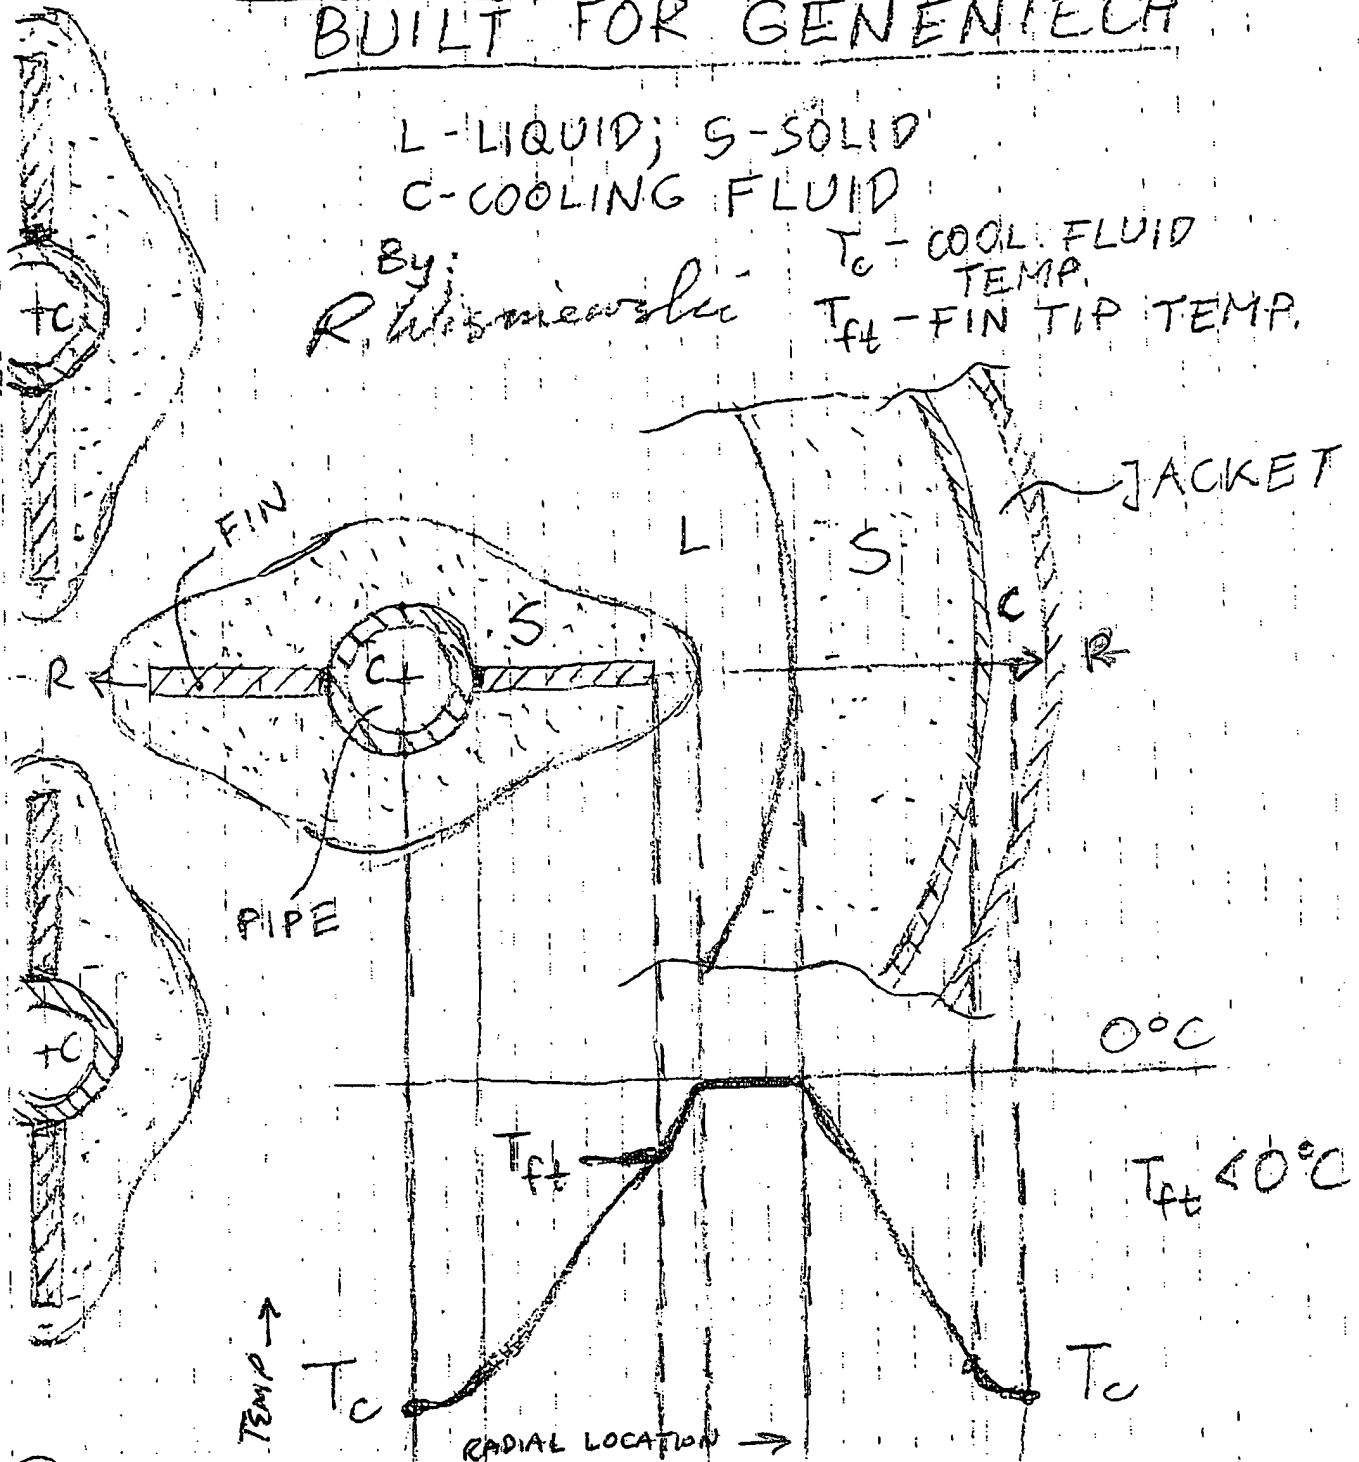 BUILT FOR GENENTECH
L-LIQUID; S-SOLID
C-COOLING FLUID
By:
R. Wisniewski
Tc - COOL. FLUID
TEMP.
Tft - FIN TIP TEMP.
+C
JACKET
FIN
L
S
S
C
R
C+
R
PIPE
+C
0°C
Tft
Tft < 0°C
TEMP →
Tc
Tc
RADIAL LOCATION →